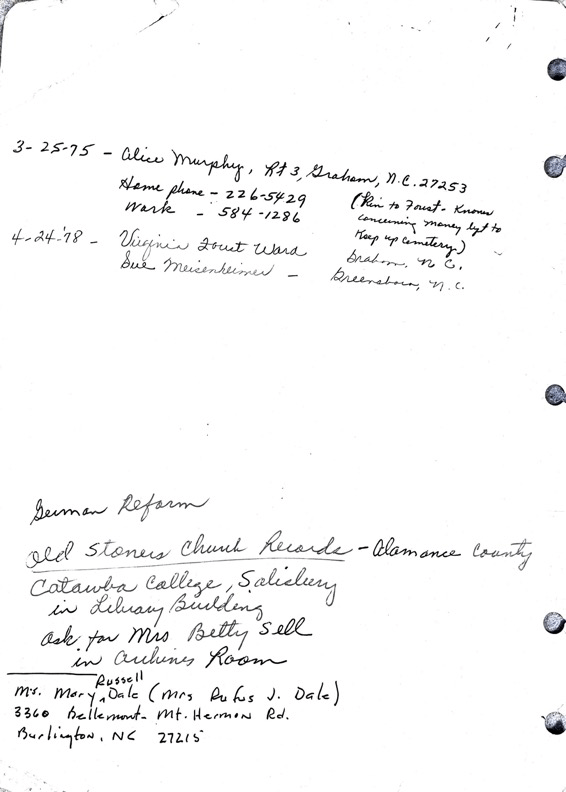 3-25-75 - Alice Murphy, Rt 3, Graham, N.C. 27253
Home phone - 226-5429
Work - 584-1286
(Kin to Foust - Knows
concerning money left to
Keep up cemetery.)
4-24-'78 - Virginia Foust Ward Graham, N.C.
Sue Meisenheimer - Greensboro, N.C.
German Reform
Old Stoners Church Records - Alamance County
Catawba College, Salisbury
in Library Building
ask for Mrs Betty Sell
in Archives Room
Russell
Ms. Mary ^ Dale (Mrs Rufus J. Dale)
3360 Bellemont-Mt. Hermon Rd.
Burlington, NC 27215